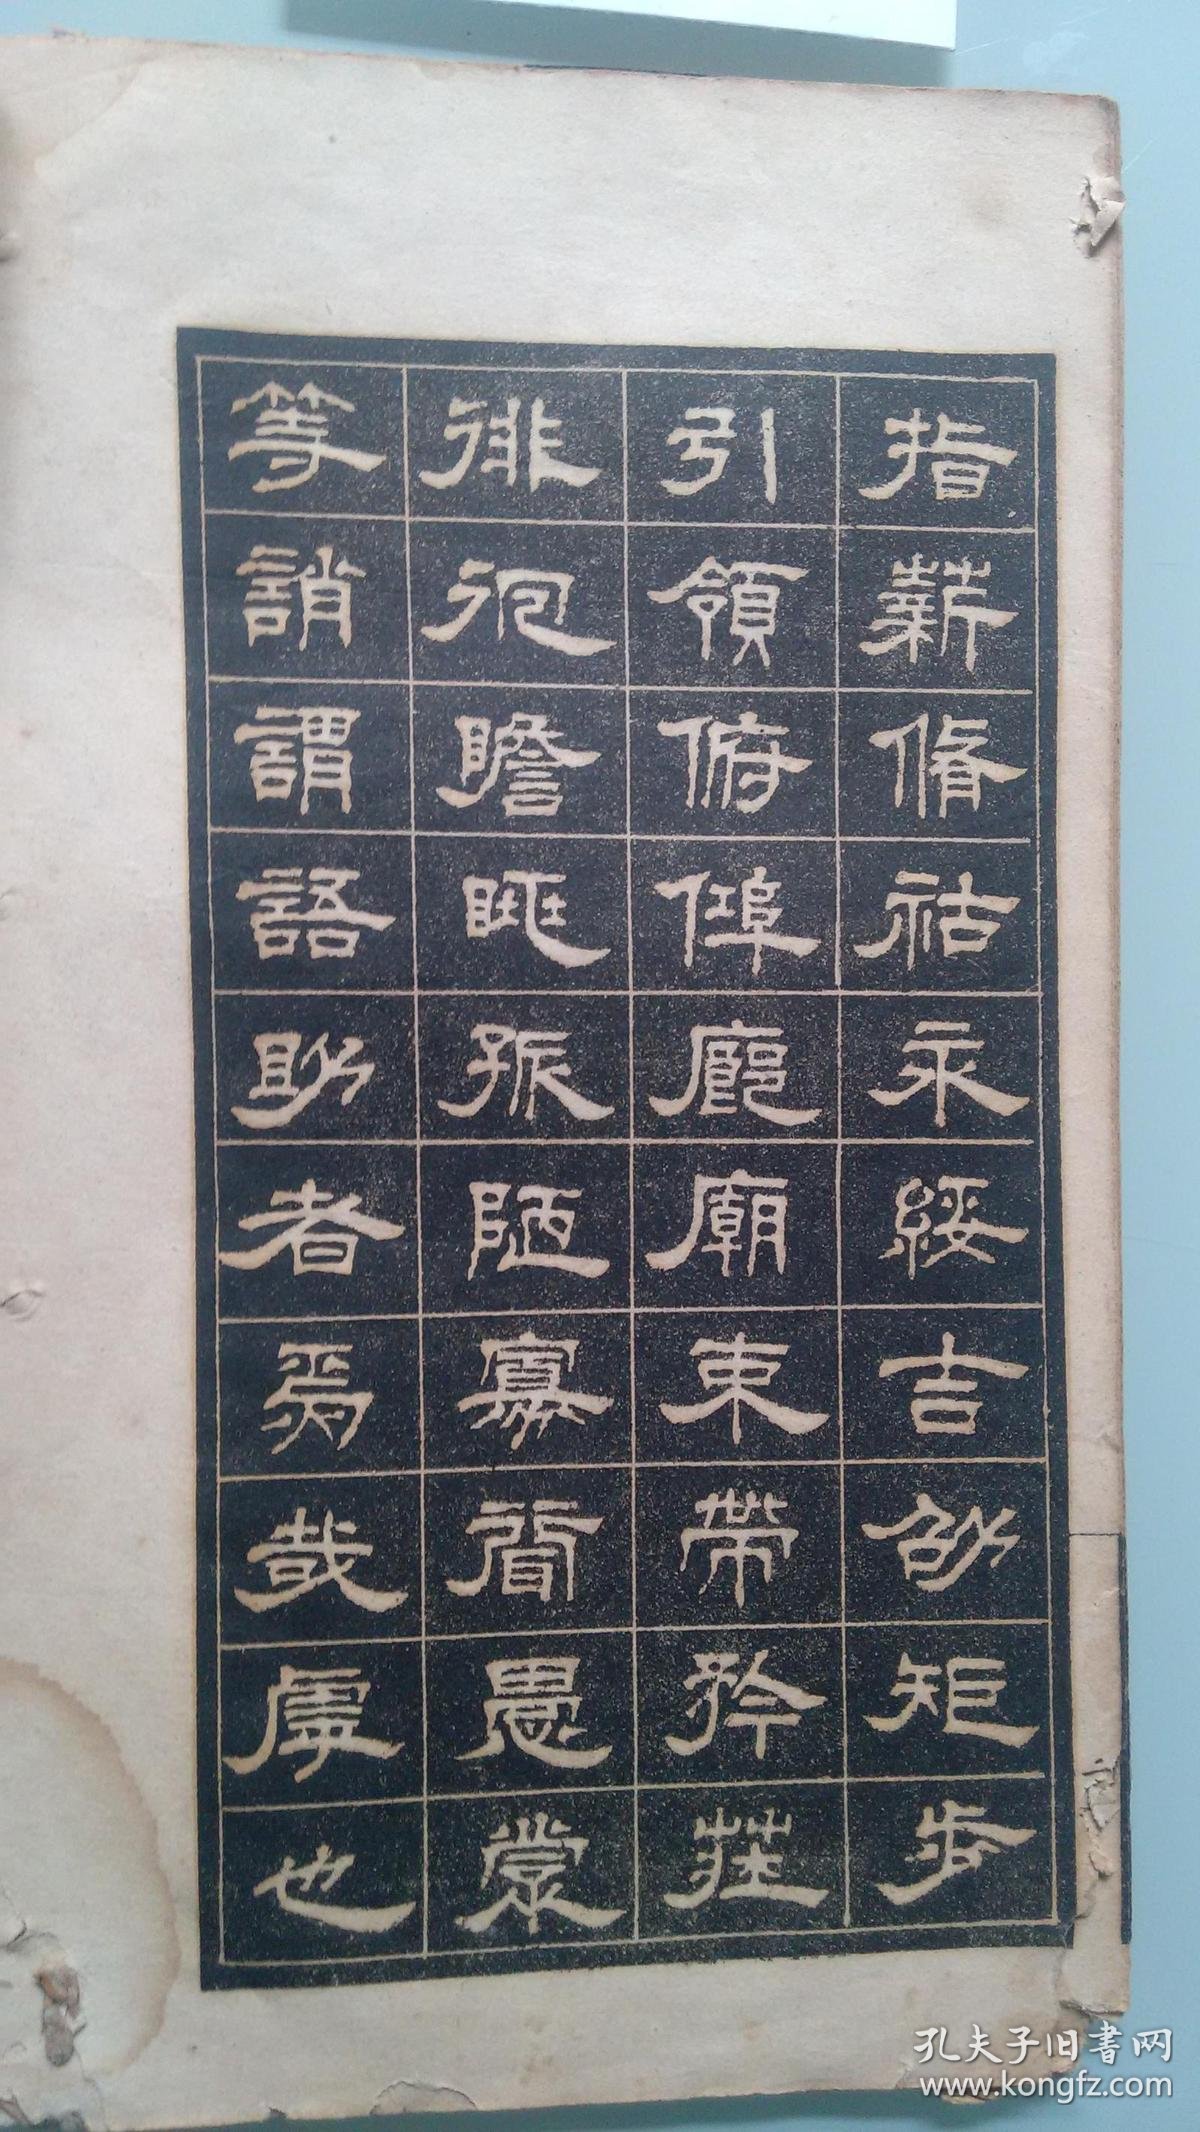 指薪脩祜永綏吉劭矩步
引領俯俾廊廟束帶矜莊
徘徊瞻眺孤陋寡聞愚蒙
等誚謂語助者焉哉乎也
孔夫子旧書网
www.kongfz.com